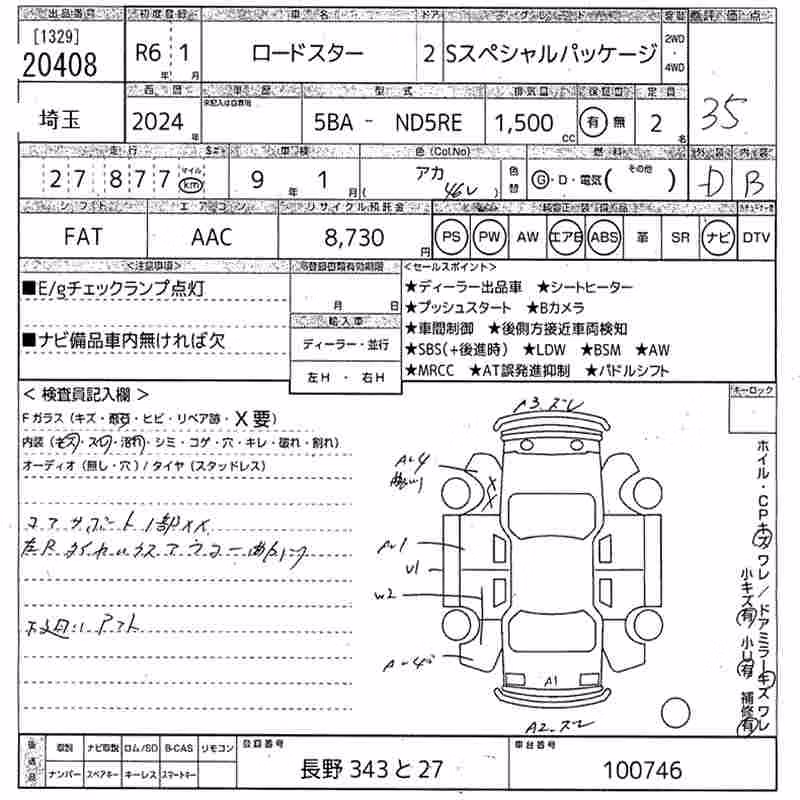 出品番号 初度登録 車名 ドア グレード 駆動 総評価点
[1329]
20408 R6年 1月 ロードスター 2 Sスペシャルパッケージ 2WD・4WD
35
西暦 車歴 型式 排気量 保証書 定員
未記入は自家用
埼玉 2024年 5BA - ND5RE 1,500cc 有 無 2名
走行 車検 色(Col.No) 燃料 外装 内装
27877 マイル km 9年 1月 アカ 46V 色替 G・D・電気( その他 ) D B
シフト エアコン リサイクル預託金 純正装備品
FAT AAC 8,730円 PS PW AW エアB ABS 革 SR ナビ DTV
<注意事項> 登録書類有効期限 <セールスポイント>
■E/gチェックランプ点灯
■ナビ備品車内無ければ欠
月 日
輸入車
ディーラー・並行
左H ・ 右H
★ディーラー出品車 ★シートヒーター
★プッシュスタート ★Bカメラ
★車間制御 ★後側方接近車両検知
★SBS(+後進時) ★LDW ★BSM ★AW
★MRCC ★AT誤発進抑制 ★パドルシフト
<検査員記入欄>
Fガラス(キズ・飛石・ヒビ・リペア跡・X要)
内装(キズ・スレ・汚れ・シミ・コゲ・穴・キレ・破れ・割れ)
オーディオ(無し・穴)/タイヤ(スタッドレス)
コアサポート1部XX
キーロック
A3.ズレ
A-4
A-1
U1
W2
A-4
A1
A2.ズレ
ホイル・CPキズワレ/ドアミラーキズワレ
小キズ有 小U有 補修有
後送品 取説 ナビ取説 ロム/SD B-CAS リモコン
ナンバー スペアキー キーレス スマートキー
登録番号 長野 343 と 27
車台番号 100746